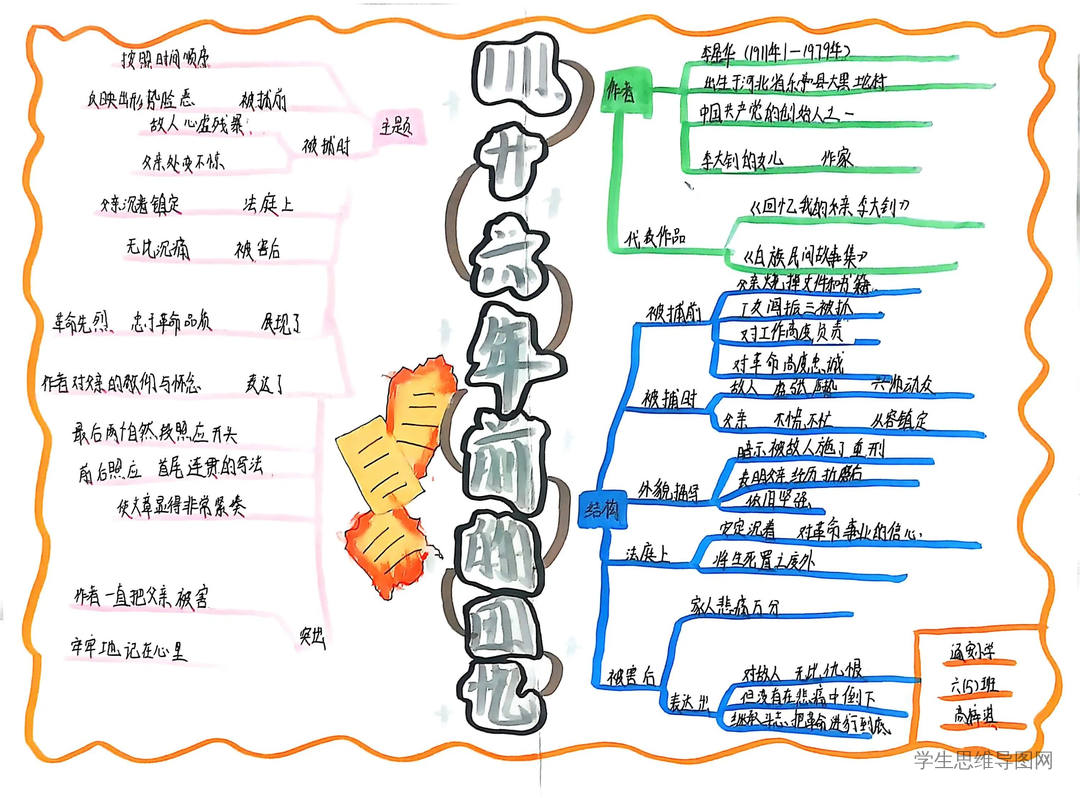 十六年前的回忆
主题
按照时间顺序
反映出形势险恶 被捕前
敌人心虚残暴
父亲处变不惊
被捕时
父亲沉着镇定 法庭上
无比沉痛 被害后
革命先烈、忠于革命品质 展现了
作者对父亲的敬仰与怀念 表达了
最后两个自然段照应开头
前后照应 首尾连贯的写法
使文章显得非常紧凑
作者一直把父亲被害
牢牢地记在心里
突出
作者
李星华(1911年—1979年)
出生于河北省乐亭县大黑坨村
中国共产党的创始人之一
李大钊的女儿 作家
代表作品
《回忆我的父亲李大钊》
《白族民间故事集》
结构
被捕前
父亲烧掉文件和书籍
阎振三被抓
对工作高度负责
对革命高度忠诚
被捕时
敌人 虚张声势 兴师动众
父亲 不慌不忙 从容镇定
外貌描写
暗示被敌人施了重刑
表明父亲经历折磨后
依旧坚强
法庭上
安定沉着 对革命事业的信心
将生死置之度外
被害后
家人悲痛万分
表达出
对敌人 无比仇恨
但没有在悲痛中倒下
继承斗志 把革命进行到底
小学
六(5)班
学生思维导图网